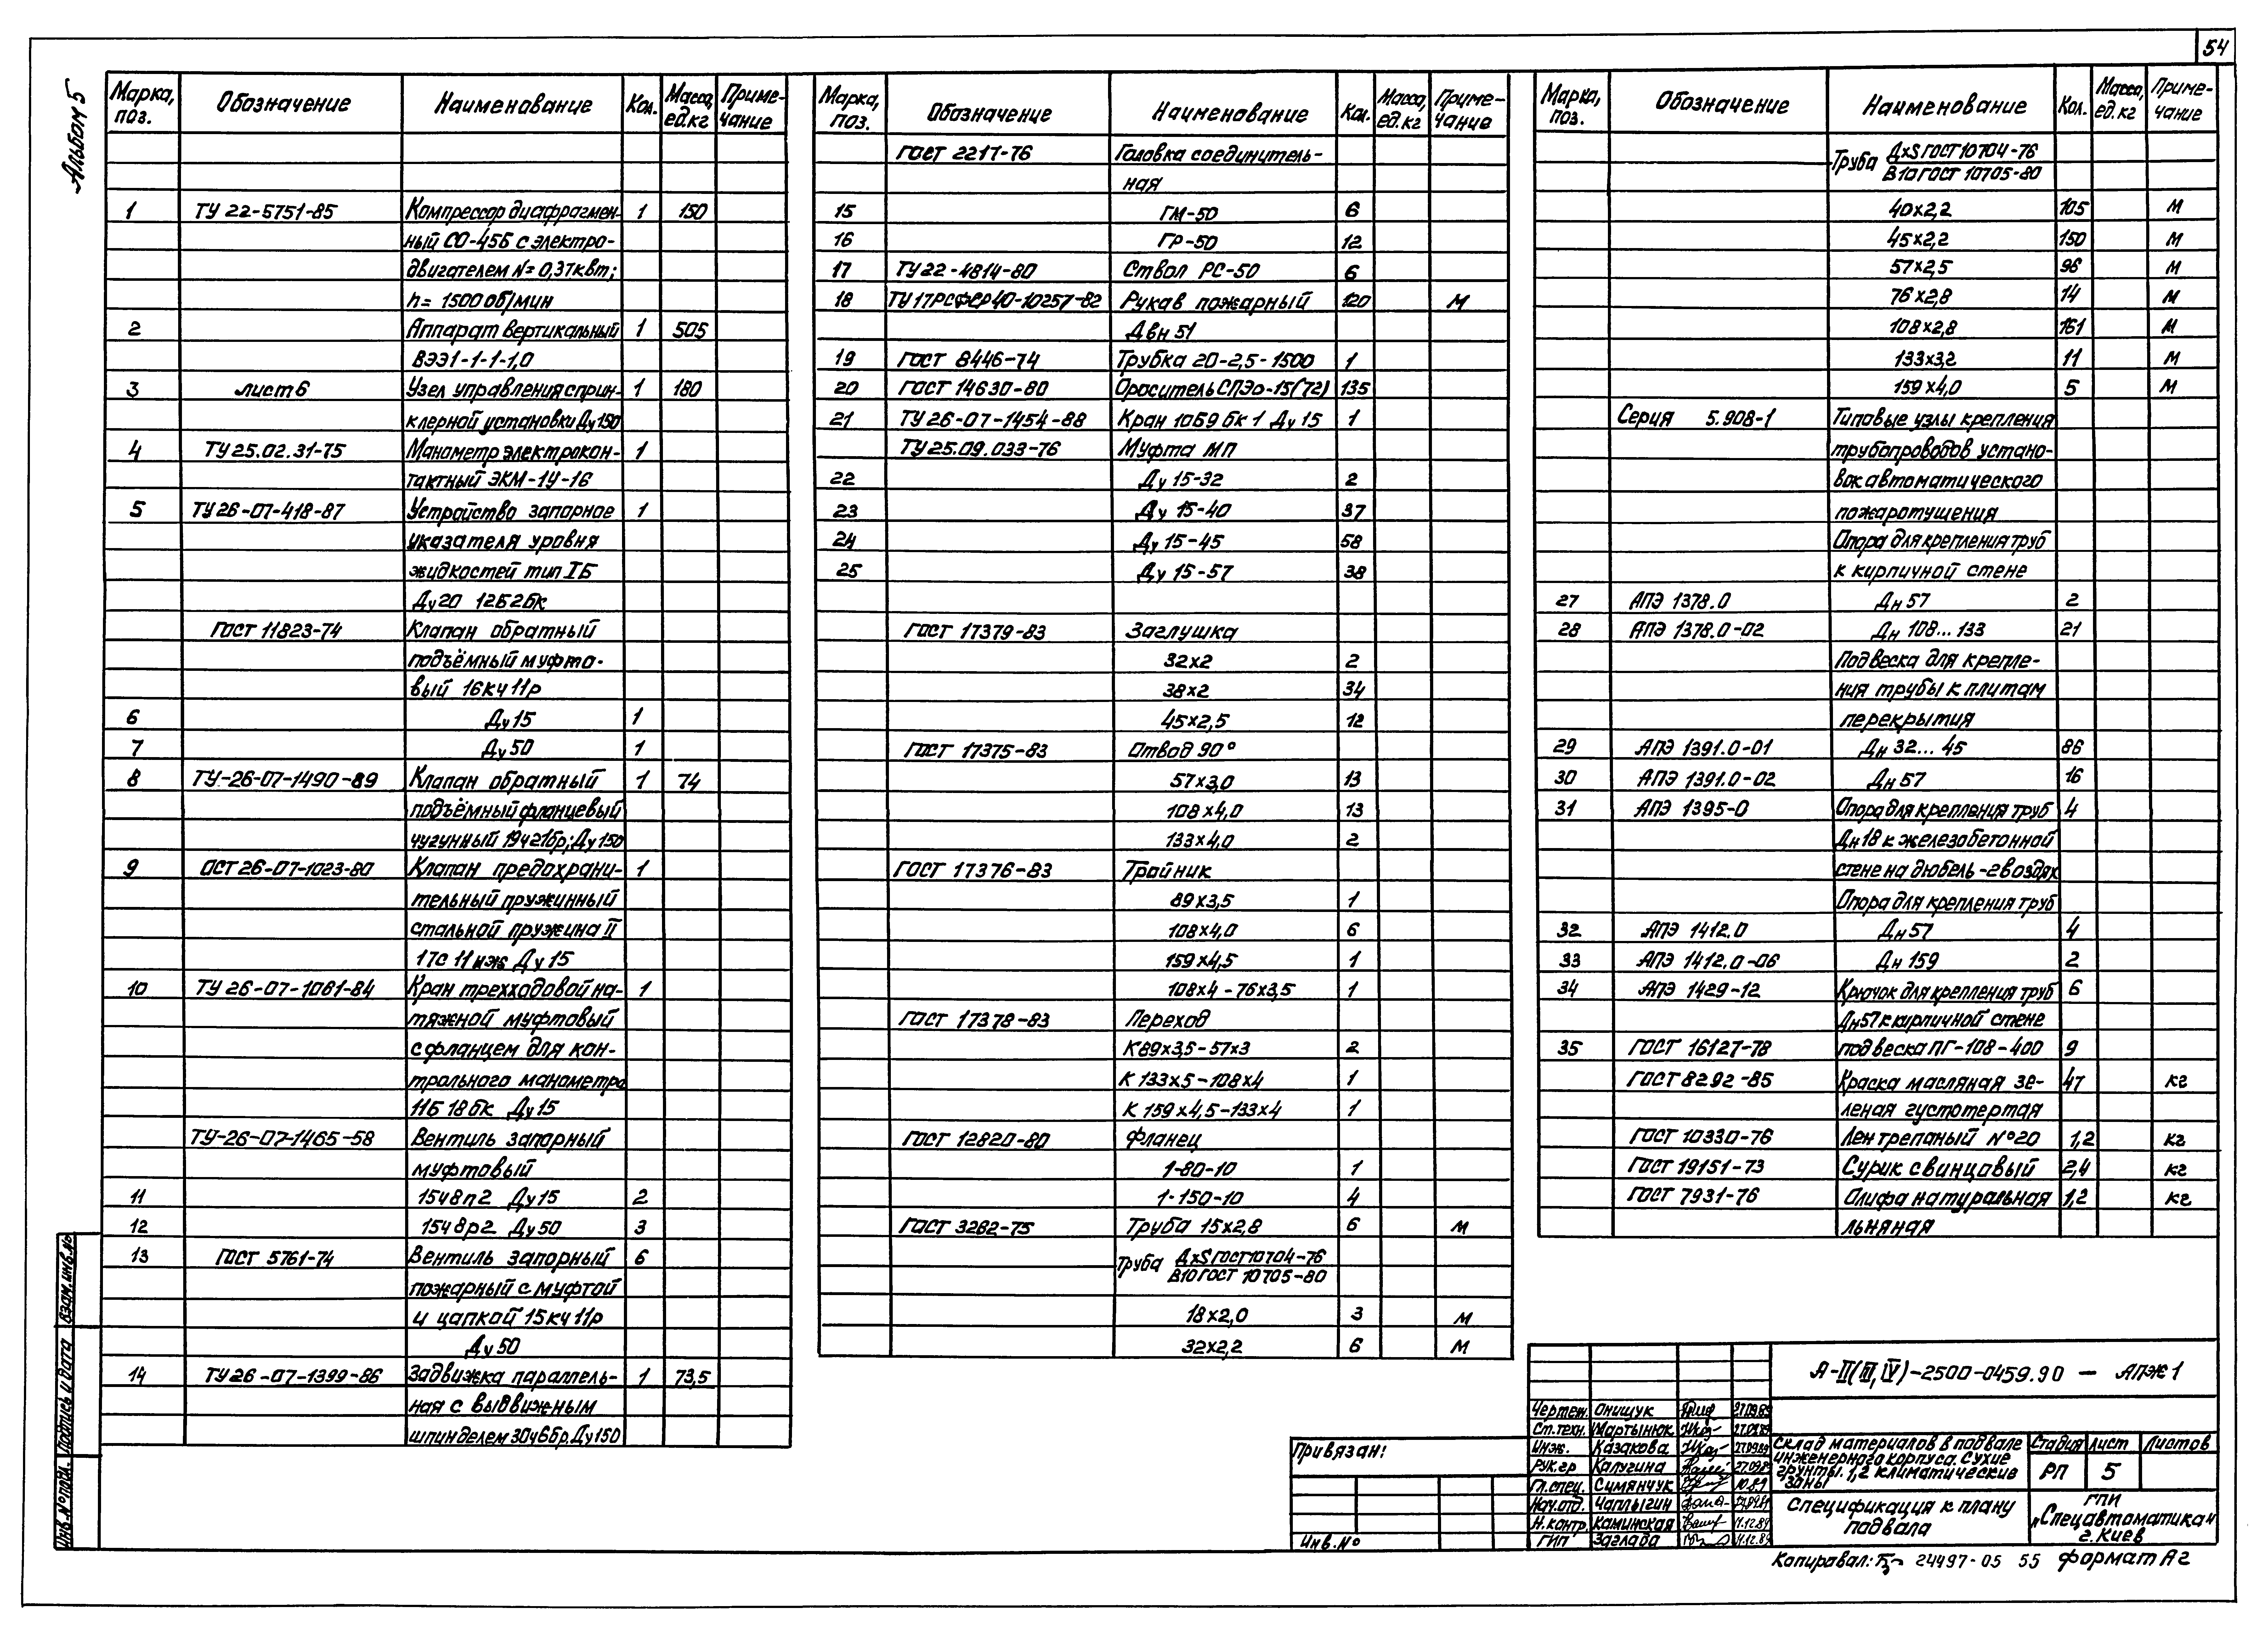 54
Альбом 5
Марка, поз. Обозначение Наименование Кол. Масса, ед. кг Примечание
1 ТУ 22-5751-85 Компрессор диафрагмен- 1 150
ный СО-45Б с электро-
двигателем N=0,37квт;
n=1500 об/мин
2 Аппарат вертикальный 1 505
ВЭЭ1-1-1-1,0
3 лист 6 Узел управления сприн- 1 180
клерной установки Ду150
4 ТУ 25.02.31-75 Манометр электрокон- 1
тактный ЭКМ-1У-16
5 ТУ 26-07-418-87 Устройство запорное 1
указателя уровня
жидкостей тип IБ
Ду20 12Б2бк
ГОСТ 11823-74 Клапан обратный
подъёмный муфто-
вый 16кч11р
6 Ду15 1
7 Ду50 1
8 ТУ-26-07-1490-89 Клапан обратный 1 74
подъёмный фланцевый
чугунный 19ч21бр; Ду150
9 ОСТ 26-07-1023-80 Клапан предохрани- 1
тельный пружинный
стальной пружина II
17с11нж Ду15
10 ТУ 26-07-1061-84 Кран трехходовой на- 1
тяжной муфтовый
с фланцем для кон-
трольного манометра
11Б18бк Ду15
ТУ-26-07-1465-58 Вентиль запорный
муфтовый
11 15ч8п2 Ду15 2
12 15ч8р2 Ду50 3
13 ГОСТ 5761-74 Вентиль запорный 6
пожарный с муфтой
и цапкой 15кч11р
Ду50
14 ТУ 26-07-1399-86 Задвижка параллель- 1 73,5
ная с выдвижным
шпинделем 30ч6бр. Ду150
Марка, поз. Обозначение Наименование Кол. Масса, ед. кг Примечание
ГОСТ 2217-76 Головка соединитель-
ная
15 ГМ-50 6
16 ГР-50 12
17 ТУ 22-4814-80 Ствол РС-50 6
18 ТУ 17РСФСР 40-10257-82 Рукав пожарный 120 м
Двн 51
19 ГОСТ 8446-74 Трубка 20-2,5-1500 1
20 ГОСТ 14630-80 Ороситель СПЭо-15(72) 135
21 ТУ 26-07-1454-88 Кран 10Б9бк1 Ду15 1
ТУ 25.09.033-76 Муфта МП
22 Ду 15-32 2
23 Ду 15-40 37
24 Ду 15-45 58
25 Ду 15-57 38
ГОСТ 17379-83 Заглушка
32х2 2
38х2 34
45х2,5 12
ГОСТ 17375-83 Отвод 90°
57х3,0 13
108х4,0 13
133х4,0 2
ГОСТ 17376-83 Тройник
89х3,5 1
108х4,0 6
159х4,5 1
108х4-76х3,5 1
ГОСТ 17378-83 Переход
К89х3,5-57х3 2
К 133х5-108х4 1
К 159х4,5-133х4 1
ГОСТ 12820-80 Фланец
1-80-10 1
1-150-10 4
ГОСТ 3262-75 Труба 15х2,8 6 м
Труба ДхS ГОСТ 10704-76
В10 ГОСТ 10705-80
18х2,0 3 м
32х2,2 6 м
Марка, поз. Обозначение Наименование Кол. Масса, ед. кг Примечание
Труба ДхS ГОСТ 10704-76
В10 ГОСТ 10705-80
40х2,2 105 м
45х2,2 150 м
57х2,5 96 м
76х2,8 14 м
108х2,8 161 м
133х3,2 11 м
159х4,0 5 м
Серия 5.908-1 Типовые узлы крепления
трубопроводов устано-
вок автоматического
пожаротушения
Опора для крепления труб
к кирпичной стене
27 АПЭ 1378.0 Дн 57 2
28 АПЭ 1378.0-02 Дн 108...133 21
Подвеска для крепле-
ния трубы к плитам
перекрытия
29 АПЭ 1391.0-01 Дн 32...45 86
30 АПЭ 1391.0-02 Дн 57 16
31 АПЭ 1395-0 Опора для крепления труб 4
Дн18 к железобетонной
стене на дюбель-гвоздях
Опора для крепления труб
32 АПЭ 1412.0 Дн 57 4
33 АПЭ 1412.0-06 Дн 159 2
34 АПЭ 1429-12 Крючок для крепления труб 6
Дн57 к кирпичной стене
35 ГОСТ 16127-78 подвеска ПГ-108-400 9
ГОСТ 8292-85 Краска масляная зе- 47 кг
леная густотертая
ГОСТ 10330-76 Лен трепаный №20 1,2 кг
ГОСТ 19151-73 Сурик свинцовый 2,4 кг
ГОСТ 7931-76 Олифа натуральная 1,2 кг
льняная
А-II(III,IV)-2500-0459.90 - АПЖ1
Чертеж. Онищук 27.09.89
Ст.техн. Мартынюк 27.09.89
Инж. Казакова 27.09.89
Рук.гр Калугина 27.09.89
Гл.спец. Симянчук 10.89
Нач.отд. Чаплыгин
Н.контр. Каминская 11.12.89
ГИП Заглада 11.12.89
Склад материалов в подвале
инженерного корпуса. Сухие
грунты. 1,2 климатические
зоны
Стадия Лист Листов
РП 5
Спецификация к плану
подвала
ГПИ
„Спецавтоматика"
г. Киев
Привязан:
Инв.№
Инв.№подл. Подпись и дата Взам.инв.№
Копировал: 24497-05 55 Формат А2